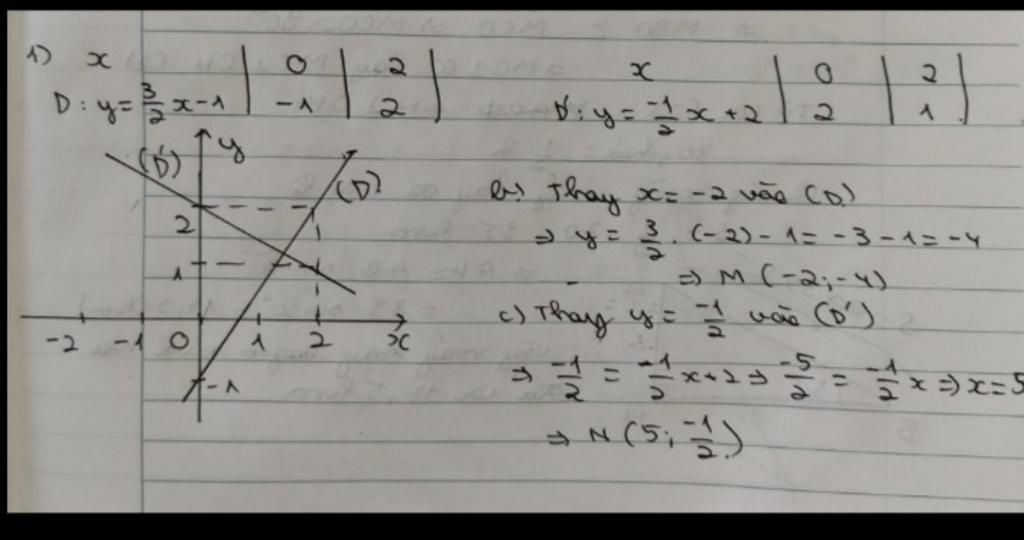 1) x | 0 | 2 |
D: y = 3/2 x - 1 | -1 | 2 |
x | 0 | 2 |
D': y = -1/2 x + 2 | 2 | 1 |
y
(D')
(D)
2
1
-2 -1 0 1 2 x
-1
b) Thay x = -2 vào (D)
⇒ y = 3/2 . (-2) - 1 = -3 - 1 = -4
⇒ M (-2; -4)
c) Thay y = -1/2 vào (D')
⇒ -1/2 = -1/2 x + 2 ⇒ -5/2 = -1/2 x ⇒ x = 5
⇒ N (5; -1/2)